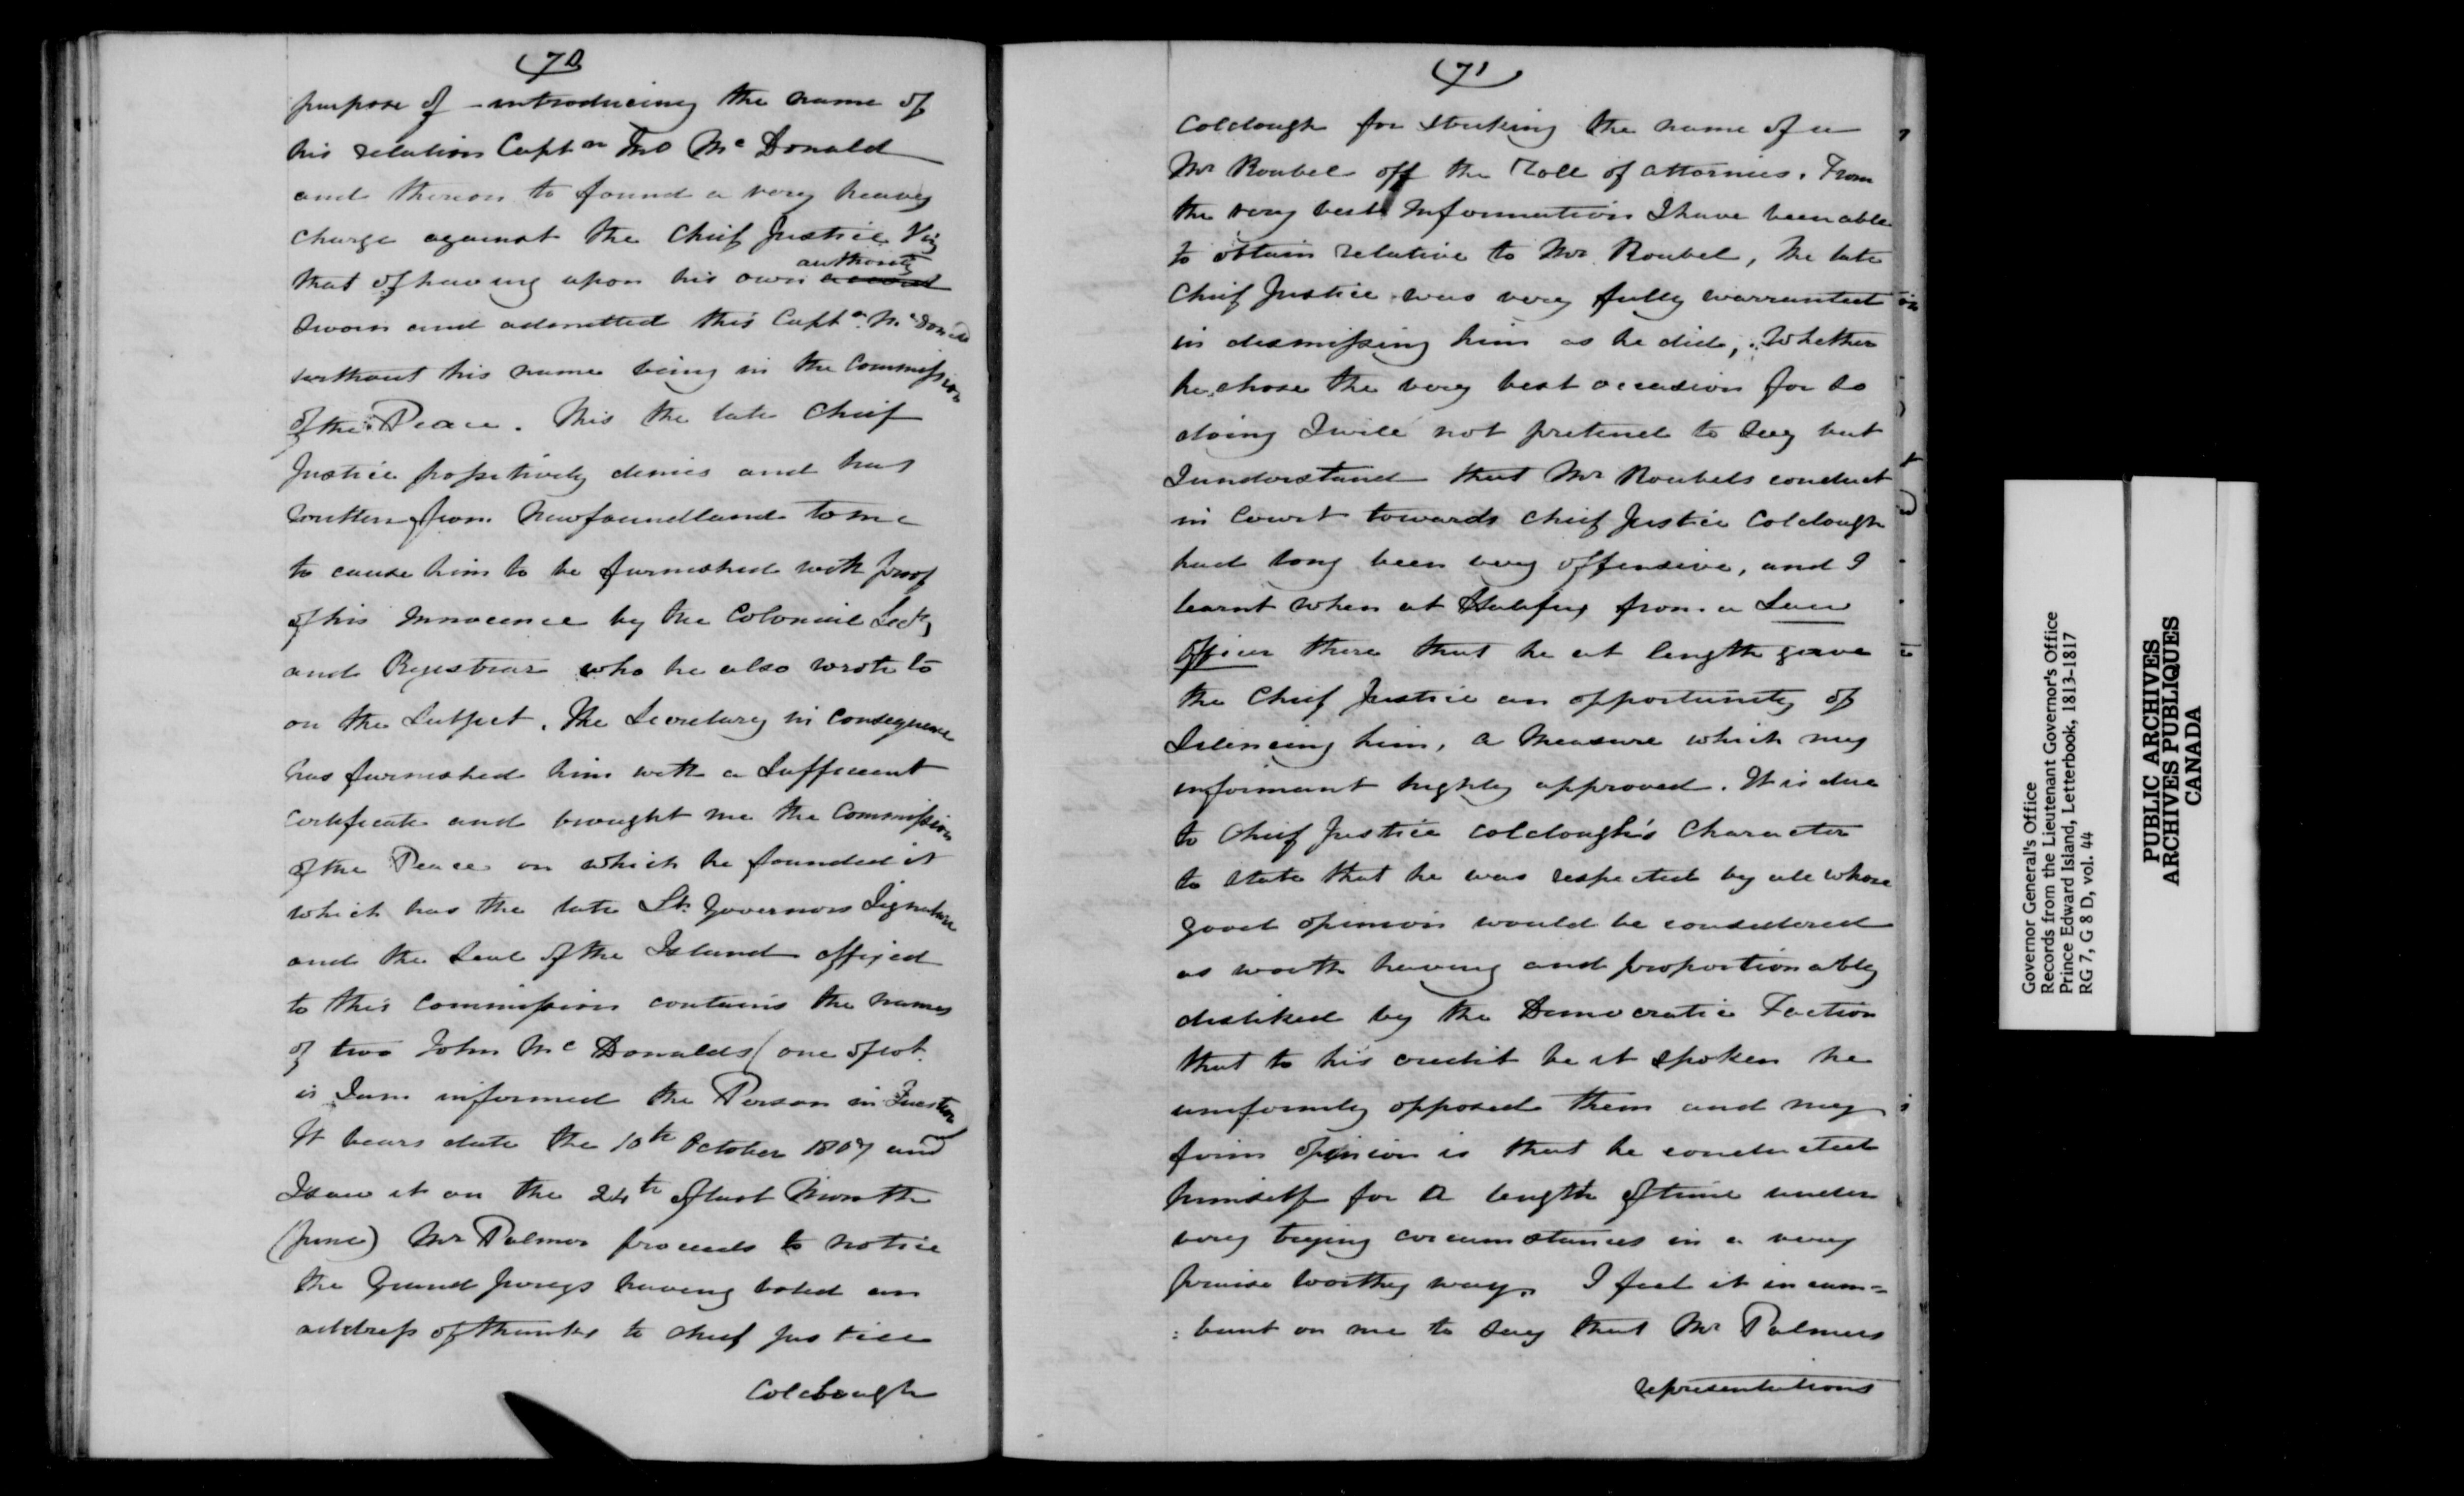 70
purpose of introducing the name of
his relation Captn Jno McDonald
and thereon to found a very heavy
charge against the Chief Justice Viz
authority
that of having upon his own accord
sworn and admitted this Captn McDonald
without his name being in the Commission
of the Peace. This the late Chief
Justice possitively denies and has
written from Newfoundland to me
to cause him to be furnished with proof
of his Innocence by the Colonial Secty
and Registrar who he also wrote to
on the Subject. The Secretary in consequence
has furnished him with a Sufficient
Certificate and brought me the Commission
of the Peace on which he founded it
which has the late Lt. Governors Signature
and the Seal of the Island affixed
to this Commission contains the names
of two John McDonalds (one of wh.
is I am informed the Person in Question
It bears date the 10th October 1807 and
I saw it on the 24th of last Month
(June) Mr Palmer proceeds to notice
the Grand Jurys having voted an
address of thanks to chief Justice
Colclough
71
Colclough for striking the name of a
Mr Roubel off the Roll of attornies. From
the very best Information I have been able
to obtain relative to Mr Roubel, the late
Chief Justice was very fully warranted
in dismissing him as he did, Whether
he chose the very best occasion for so
doing I will not pretend to say but
I understand that Mr Roubels conduct
in Court towards chief Justice Colclough
had long been very offensive, and I
learnt when at Halifax from a Law
officer there that he at length gave
the Chief Justice an opportunity of
Silencing him, a measure which my
informant highly approved. It is due
to Chief Justice Colclough's Character
to state that he was respected by all whose
good opinion would be considered
as worth having and proportionably
disliked by the Democratic Faction
that to his credit be it spoken he
uniformly opposed them and my
firm opinion is that he conducted
himself for a length of time under
very trying circumstances in a very
praise worthy way. I feel it incum=
:bent on me to say that Mr Palmers
representations
Governor General's Office
Records from the Lieutenant Governor's Office
Prince Edward Island, Letterbook, 1813-1817
RG 7, G 8 D, vol. 44
PUBLIC ARCHIVES
ARCHIVES PUBLIQUES
CANADA